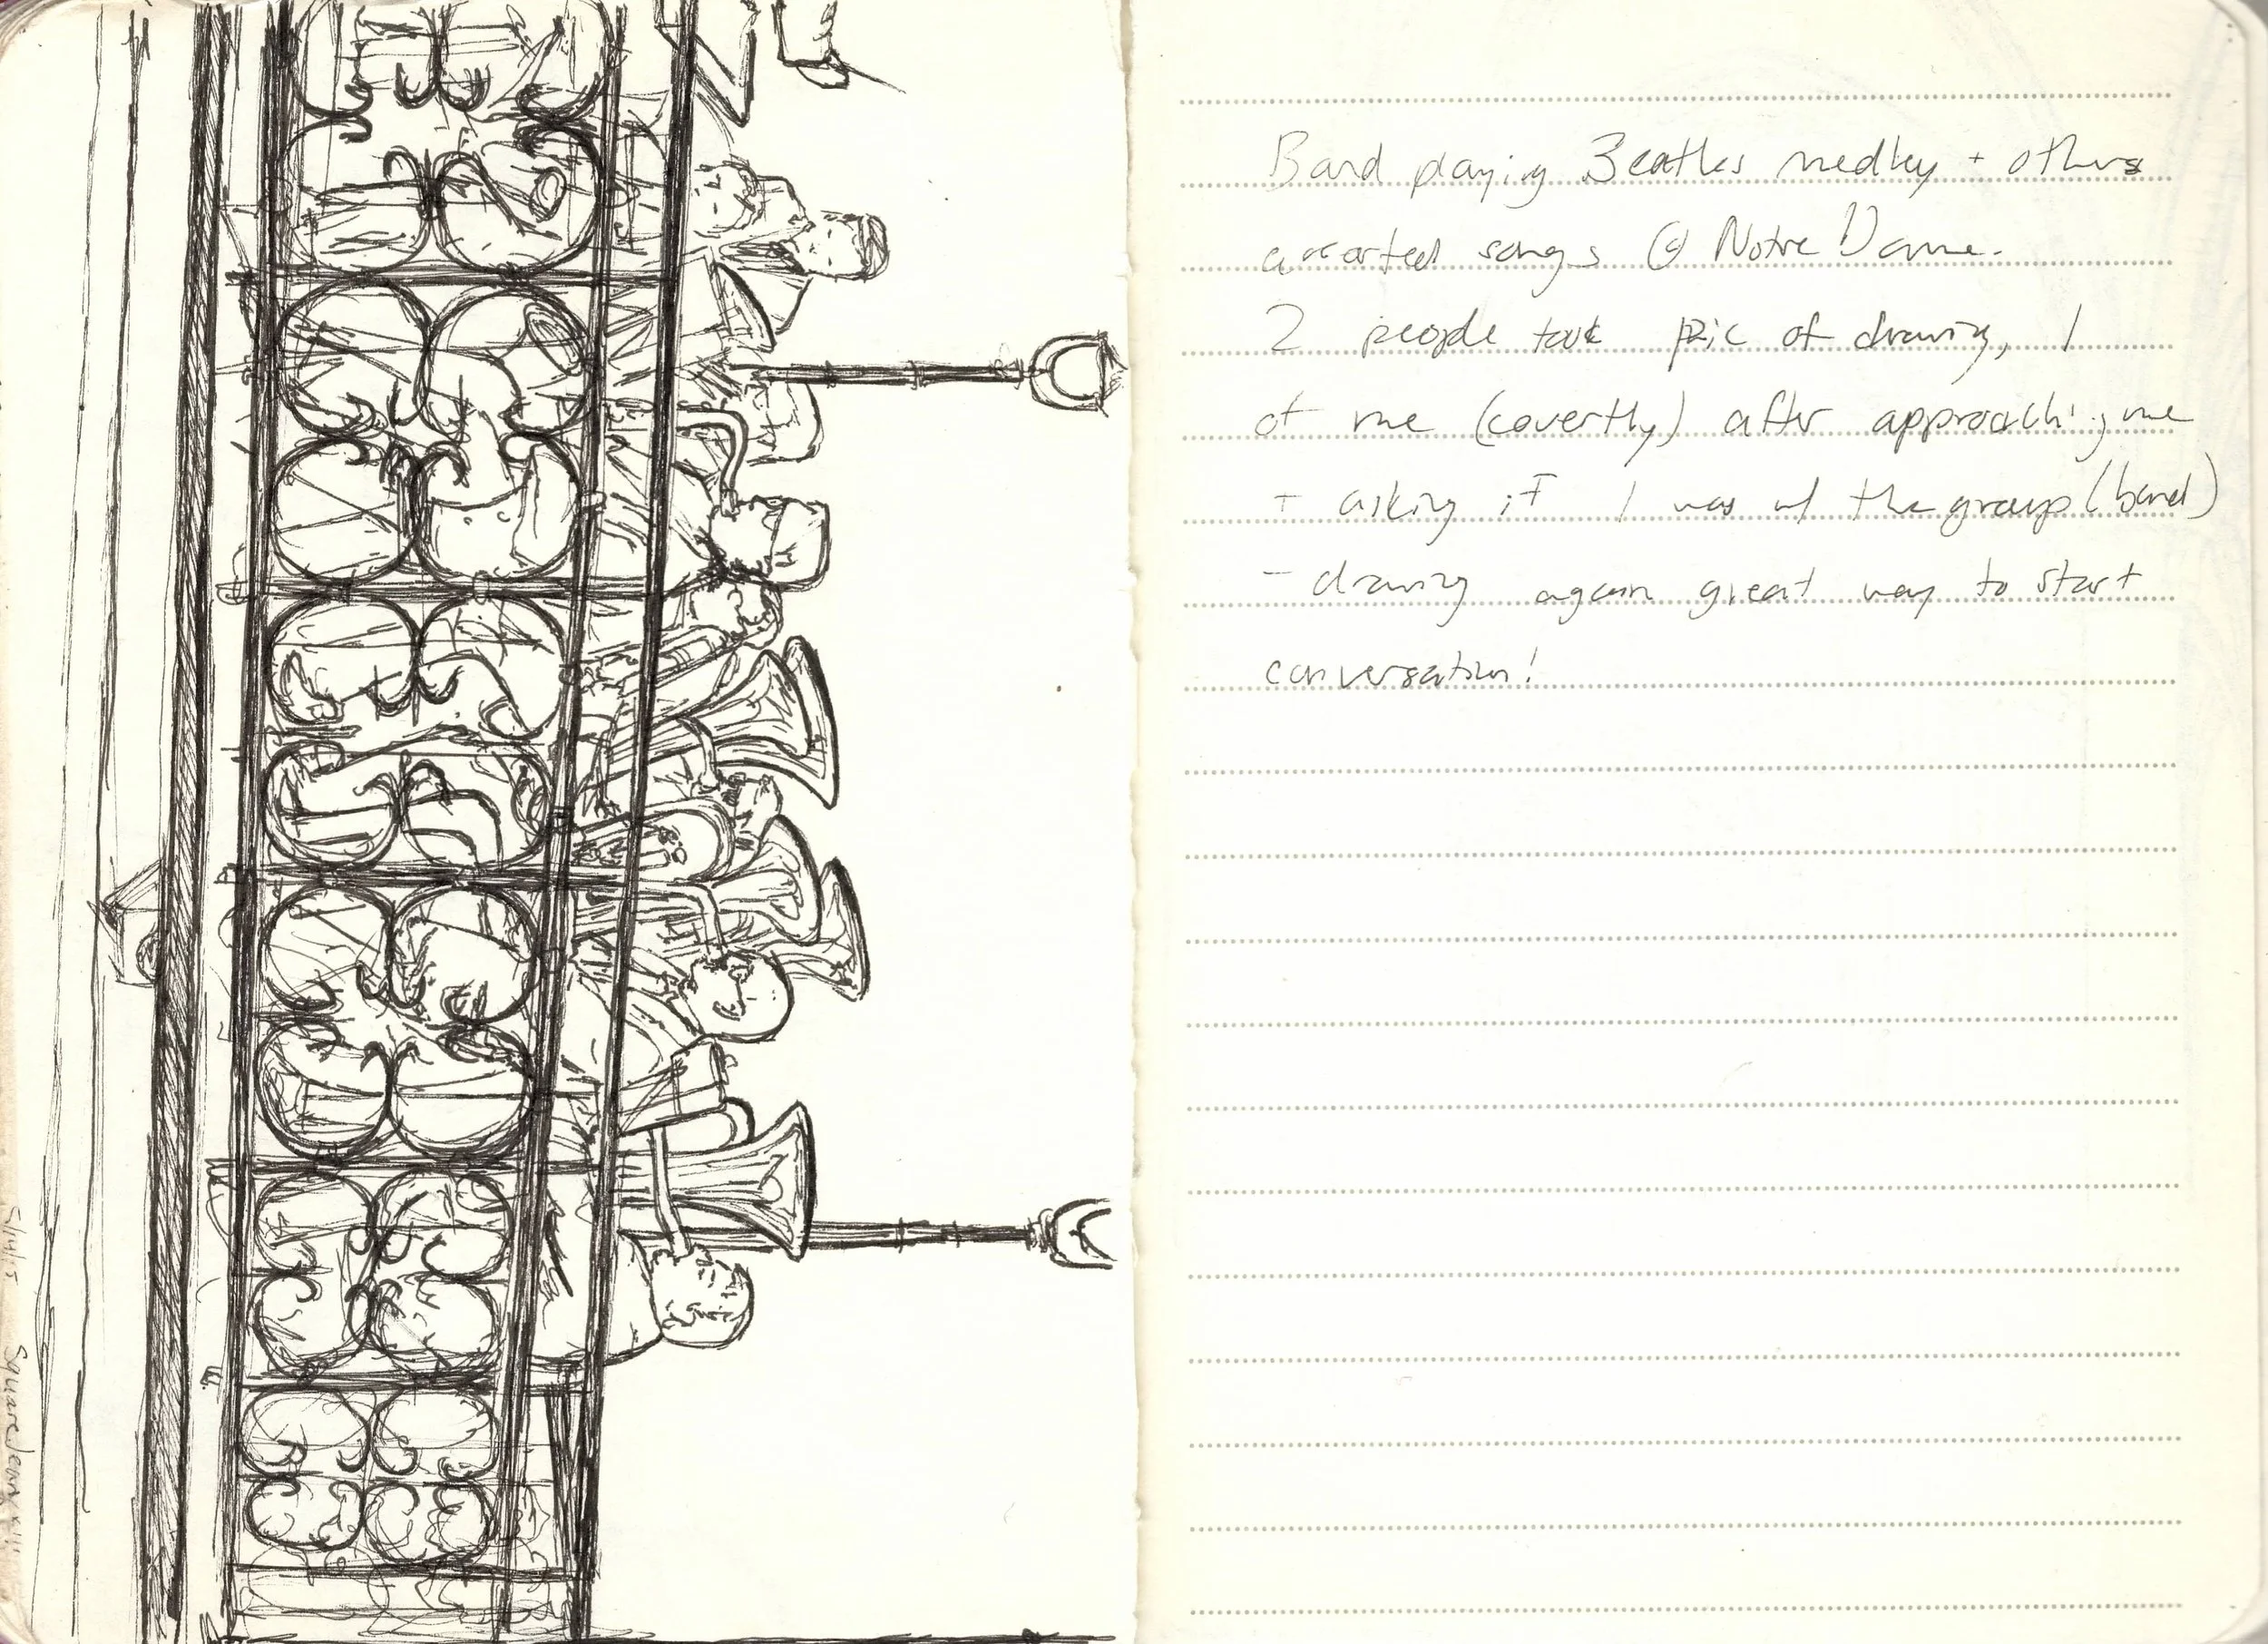 Band playing Beatles medley + others
assorted songs @ Notre Dame.
2 people took pic of drawing, 1
of me (covertly) after approaching me
+ asking if I was w/ the group (band)
- drawing again great way to start
conversation!
5/14/15 Square Jean XXIII